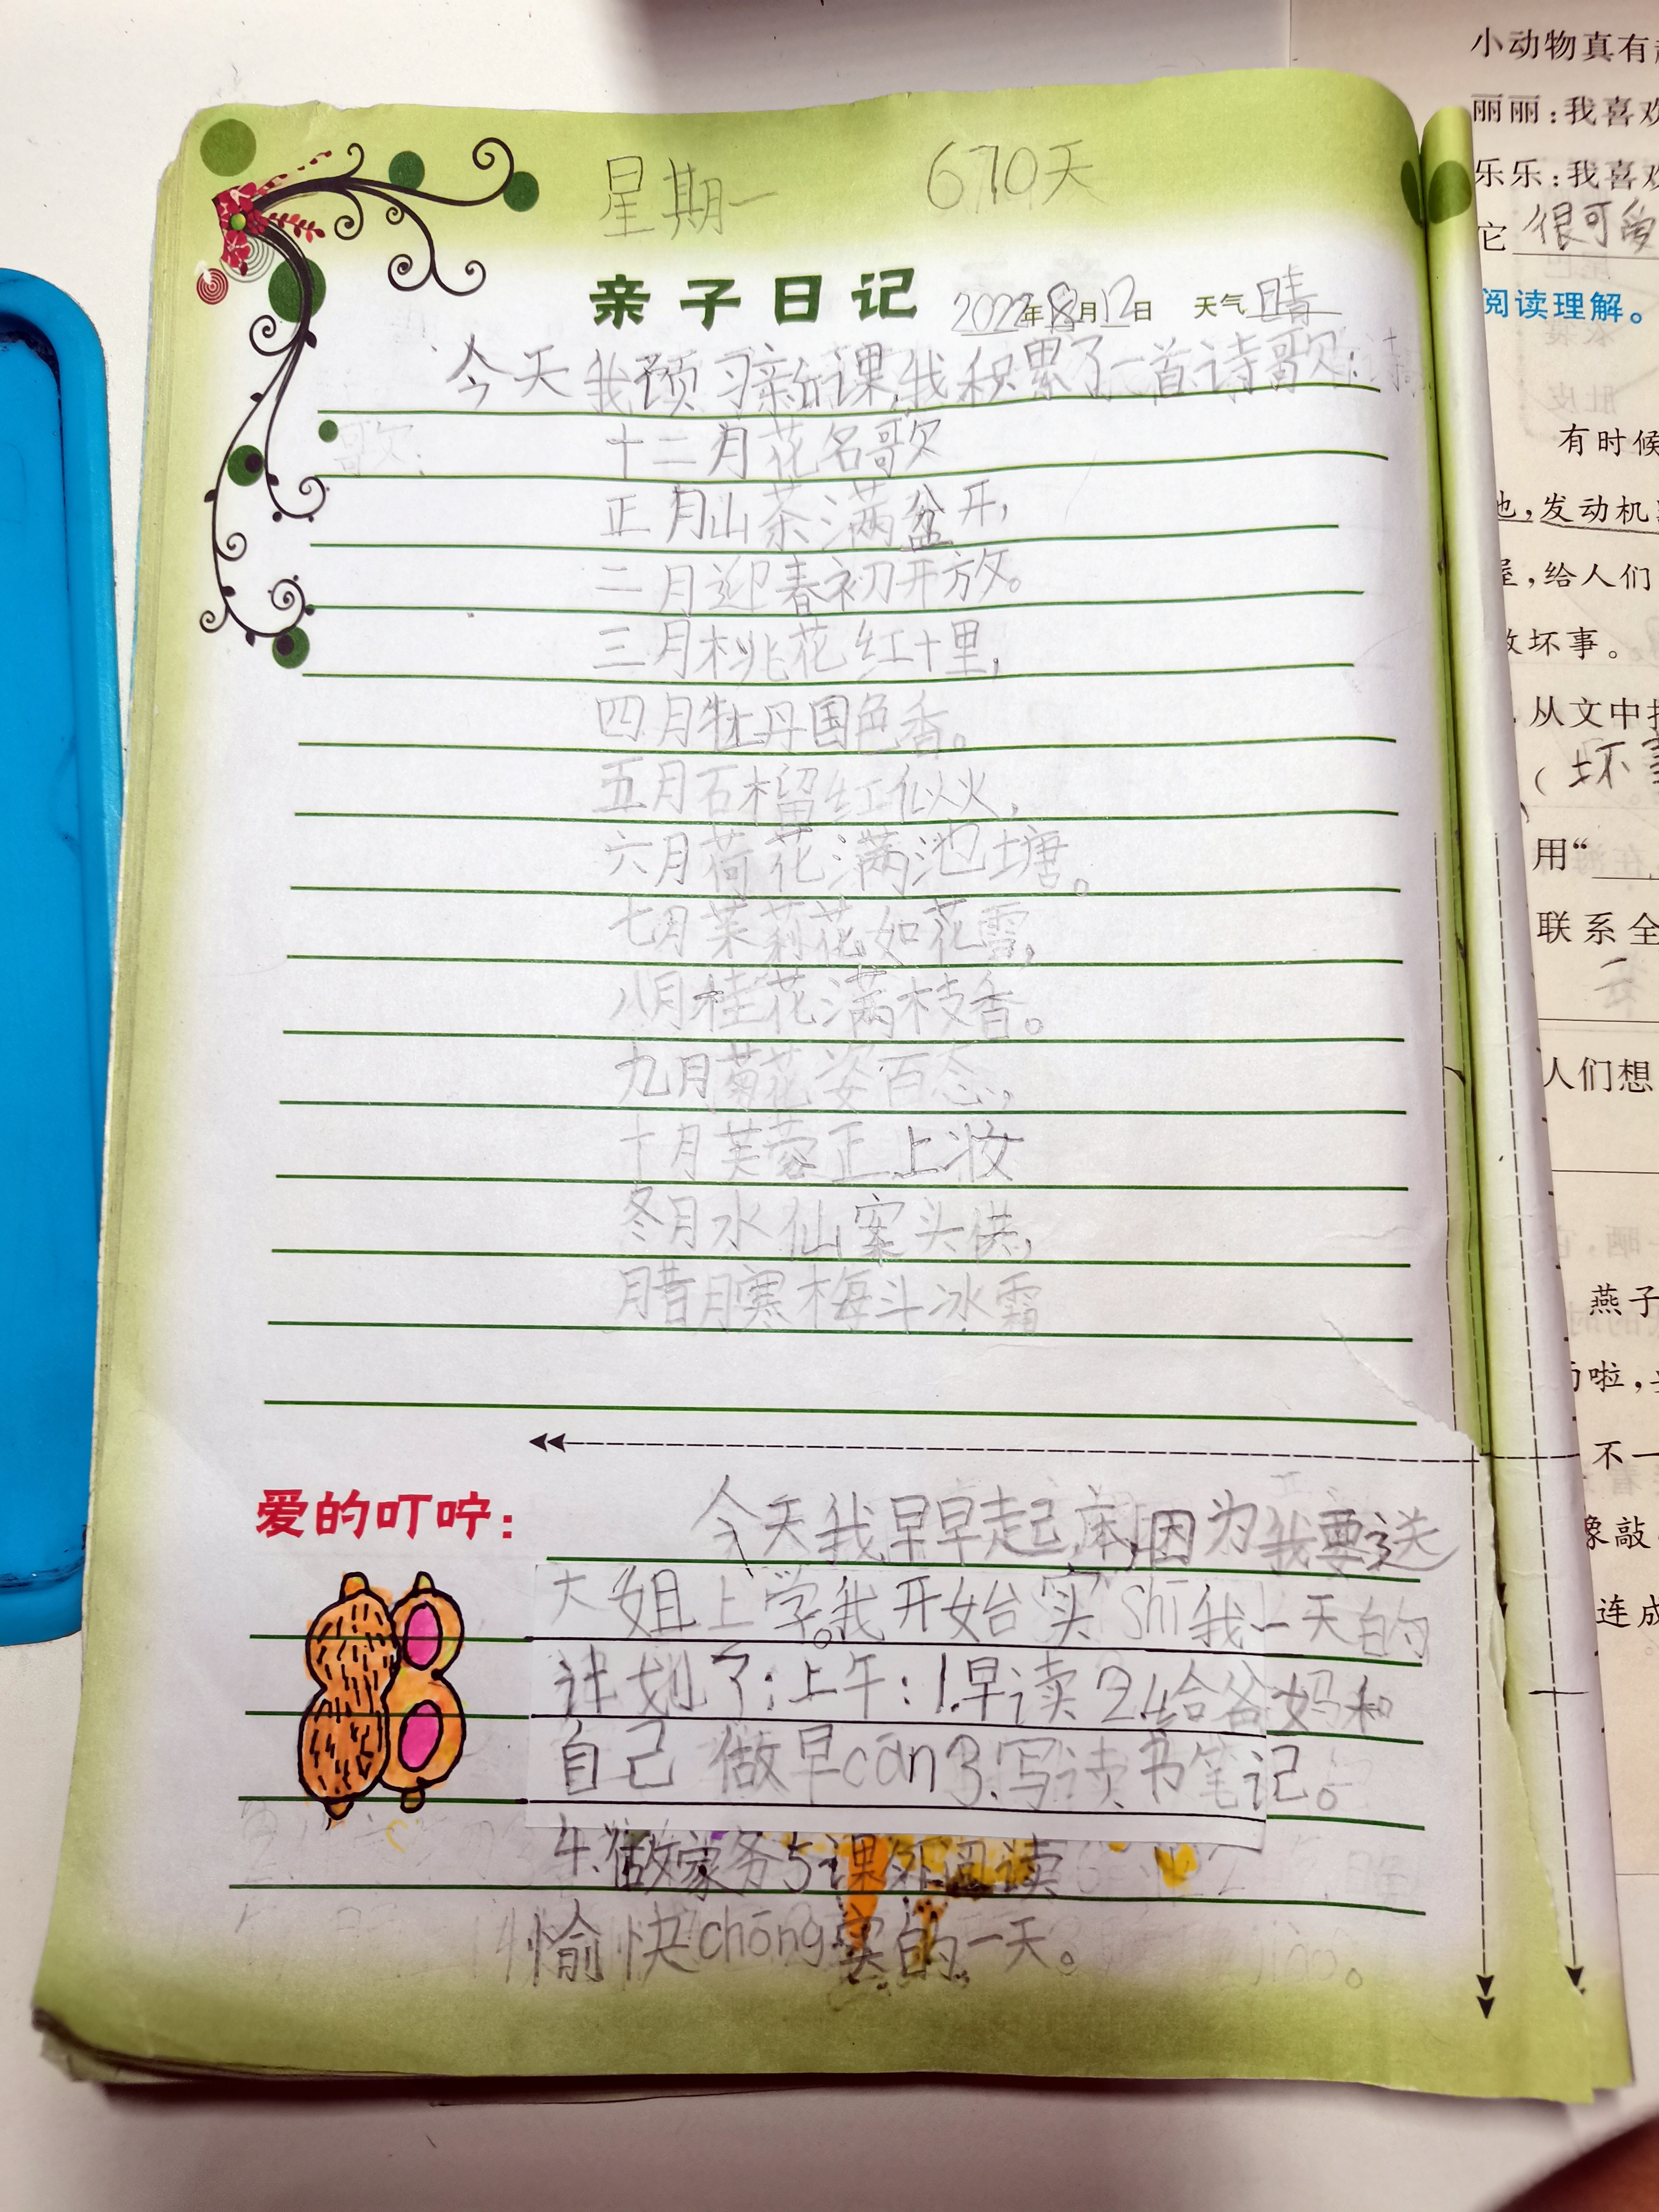 星期一 670天
亲子日记 2022年8月12日 天气晴
今天我预习新课,我积累了一首诗歌:
歌:
十二月花名歌
正月山茶满盆开,
二月迎春初开放。
三月桃花红十里,
四月牡丹国色香。
五月石榴红似火,
六月荷花满池塘。
七月茉莉花如花雪,
八月桂花满枝香。
九月菊花姿百态,
十月芙蓉正上妆
冬月水仙案头供,
腊月寒梅斗冰霜
爱的叮咛:
今天我早早起床,因为我要送
大姐上学。我开始实shī我一天的
计划了:上午:1.早读2.给爸妈和
自己做早cān3.写读书笔记。
4.做家务5课外阅读
愉快chōng实的一天。
小动物真有
丽丽:我喜欢
乐乐:我喜欢
它很可爱
阅读理解。
有时候
,发动机
,给人们
坏事。
从文中
(坏
用“
联系全
人们想
燕子
啦,
不一
像敲
连成